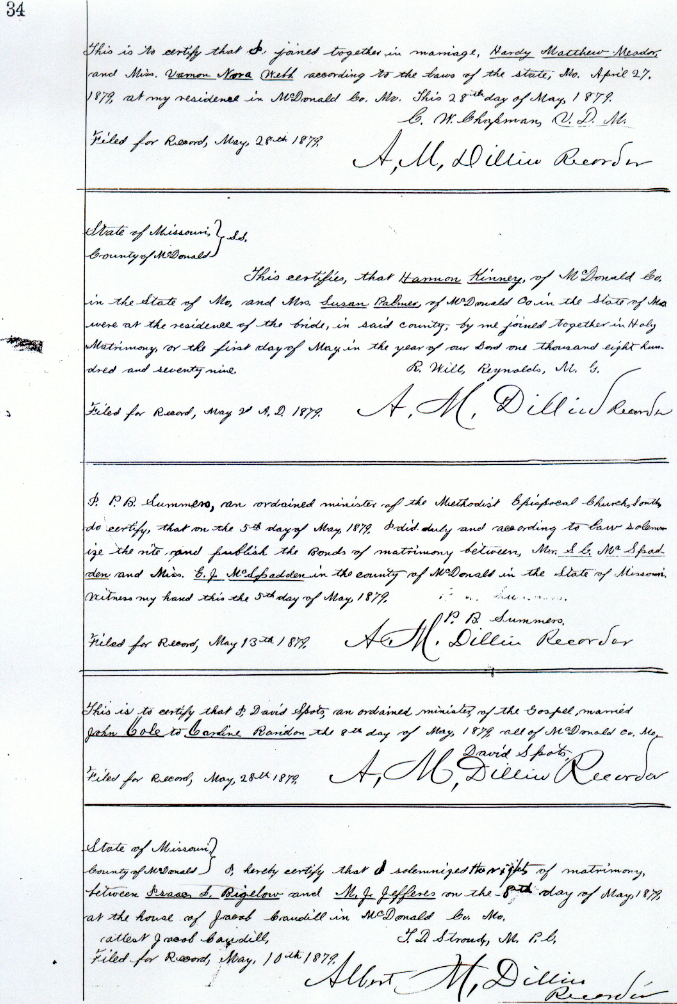 34
This is to certify that I joined together in marriage, Hardy Matthew Meador,
and Miss. Varnon Nora Webb according to the laws of the state, Mo. April 27.
1879, at my residence in McDonald Co. Mo. This 28th day of May, 1879.
C. W. Chapman, V. D. M.
Filed for Record, May, 28th 1879.
A, M, Dillin Recorder
State of Missouri,
County of McDonald } SS.
This certifies, that Harmon Kinney, of McDonald Co.
in the State of Mo, and Mrs. Susan Palmer, of McDonald Co in the State of Mo
were at the residence of the bride, in said county, by me joined together in Holy
Matrimony, or the first day of May in the year of our Lord one thousand eight hun-
dred and seventy nine.
R. Will, Reynolds, M. G.
Filed for Record, May 2d A. D. 1879.
A. M, Dillin Recorder
I, P. B. Summers, an ordained minister of the Methodist Episcopal Church, South
do certify, that on the 5th day of May, 1879. I did duly and according to law solemn
ize the rite and publish the Bonds of matrimony between, Mr. S. C. McSpad-
den and Miss. E. J. McSpadden in the county of McDonald in the State of Missouri.
Witness my hand this the 5th day of May, 1879.
P. B Summers.
Filed for Record, May 13th 1879.
A M. Dillin Recorder
This is to certify that I, David Spots, an ordained minister, of the Gospel, married
John Cole to Caroline the 8th day of May, 1879, all of McDonald Co. Mo,
David Spots,
Filed for Record, May, 28th 1879.
A, M, Dillin Recorder
State of Missouri
County of McDonald } I, hereby certify that I solemnized the rights of matrimony,
between Isaac S. Bigelow and M. J. Jefferes on the 8th day of May, 1879
at the house of Jacob Caudill in McDonald Co. Mo.
attest Jacob Caudill,
T. D. Stroud, M. P. C.
Filed for Record, May, 10th 1879.
Albert M, Dillin
Recorder